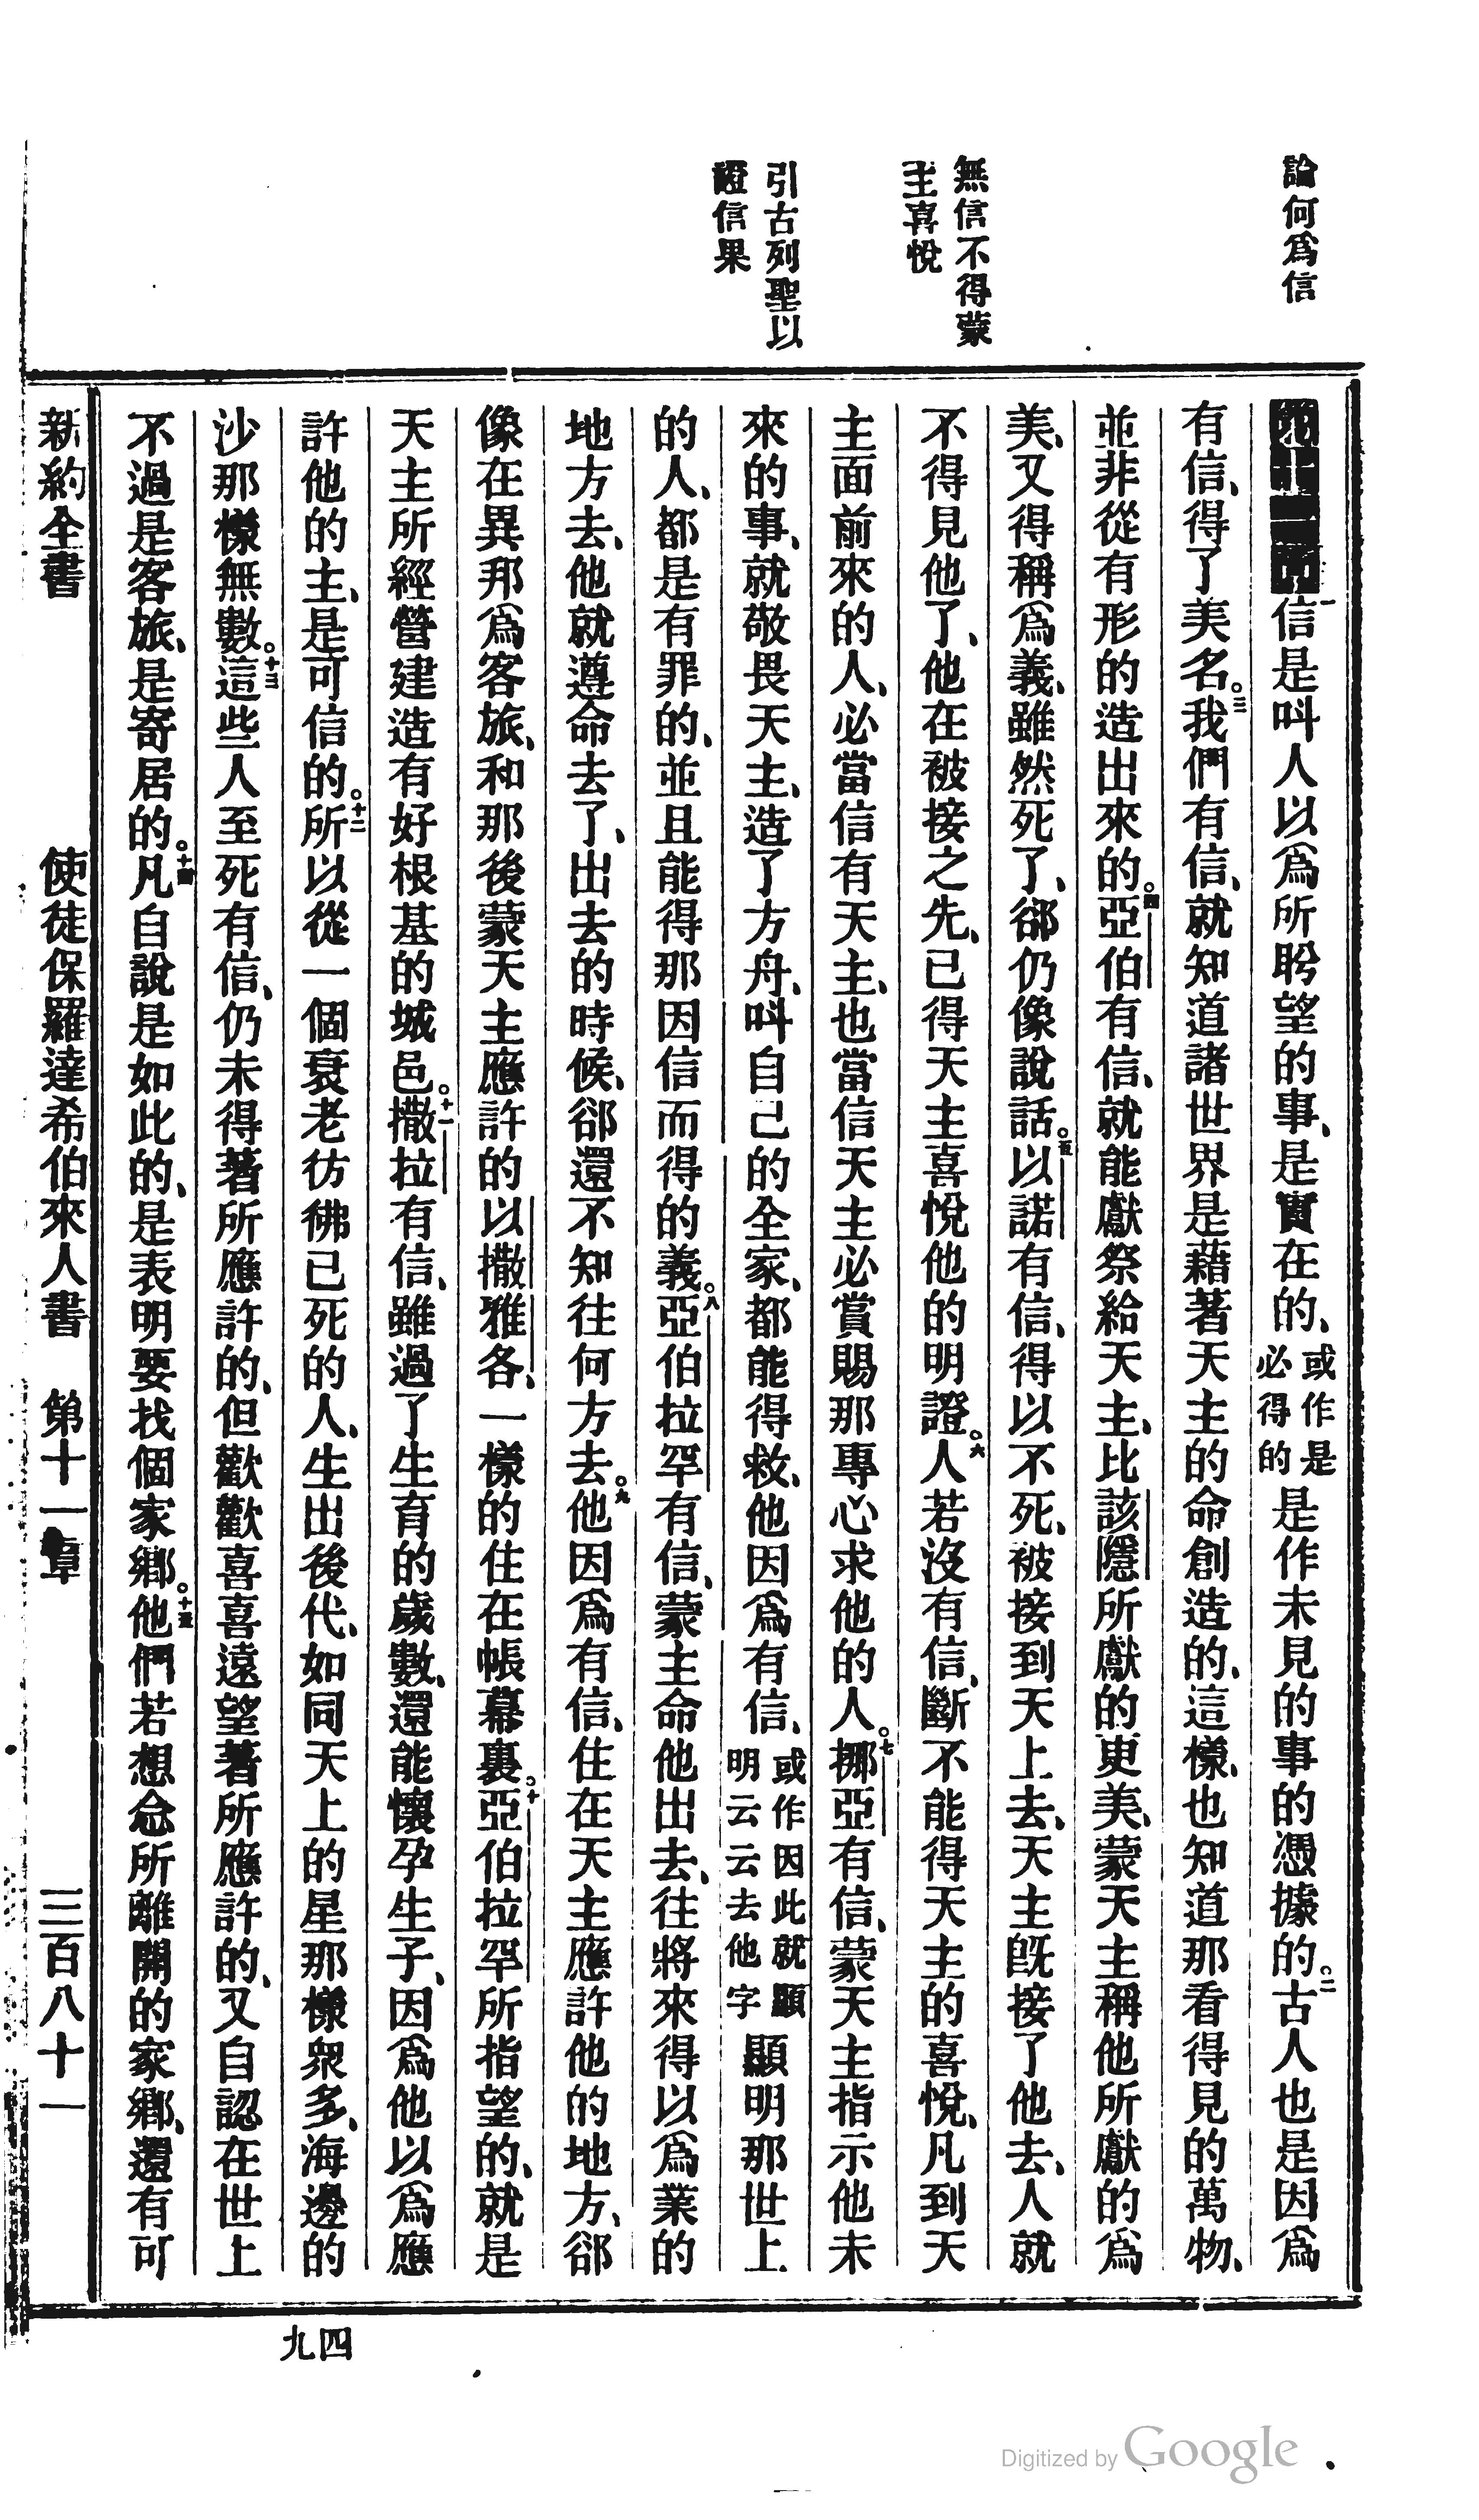 論何爲信
無信不得蒙
主喜悅
引古列聖以
證信果
第十一章一信是呌人以爲所盼望的事、是實在的、或作是必得的是作未見的事的憑據的。二古人也是因爲
有信、得了美名。三我們有信、就知道諸世界是藉著天主的命創造的、這樣、也知道那看得見的萬物、
並非從有形的造出來的。四亞伯有信、就能獻祭給天主、比該隱所獻的更美、蒙天主稱他所獻的爲
美、又得稱爲義、雖然死了、郤仍像說話。五以諾有信、得以不死、被接到天上去、天主旣接了他去、人就
不得見他了、他在被接之先、已得天主喜悅他的明證。六人若沒有信、斷不能得天主的喜悅、凡到天
主面前來的人、必當信有天主、也當信天主必賞賜那專心求他的人。七挪亞有信、蒙天主指示他未
來的事、就敬畏天主、造了方舟、呌自己的全家、都能得救、他因爲有信、或作因此就顯明云云去他字顯明那世上
的人、都是有罪的、並且能得那因信而得的義。八亞伯拉罕有信、蒙主命他出去、往將來得以爲業的
地方去、他就遵命去了、出去的時候、郤還不知往何方去。九他因爲有信、住在天主應許他的地方、郤
像在異邦爲客旅、和那後蒙天主應許的以撒雅各、一樣的住在帳幕裏。十亞伯拉罕所指望的、就是
天主所經營建造有好根基的城邑。十一撒拉有信、雖過了生育的歲數、還能懷孕生子、因爲他以爲應
許他的主、是可信的。十二所以從一個衰老彷彿已死的人、生出後代、如同天上的星那樣衆多、海邊的
沙那樣無數。十三這些人至死有信、仍未得著所應許的、但歡歡喜喜遠望著所應許的、又自認在世上
不過是客旅、是寄居的。十四凡自說是如此的、是表明要找個家鄉。十五他們若想念所離開的家鄉、還有可
新約全書 使徒保羅達希伯來人書 第十一章 三百八十一
四九
Digitized by Google